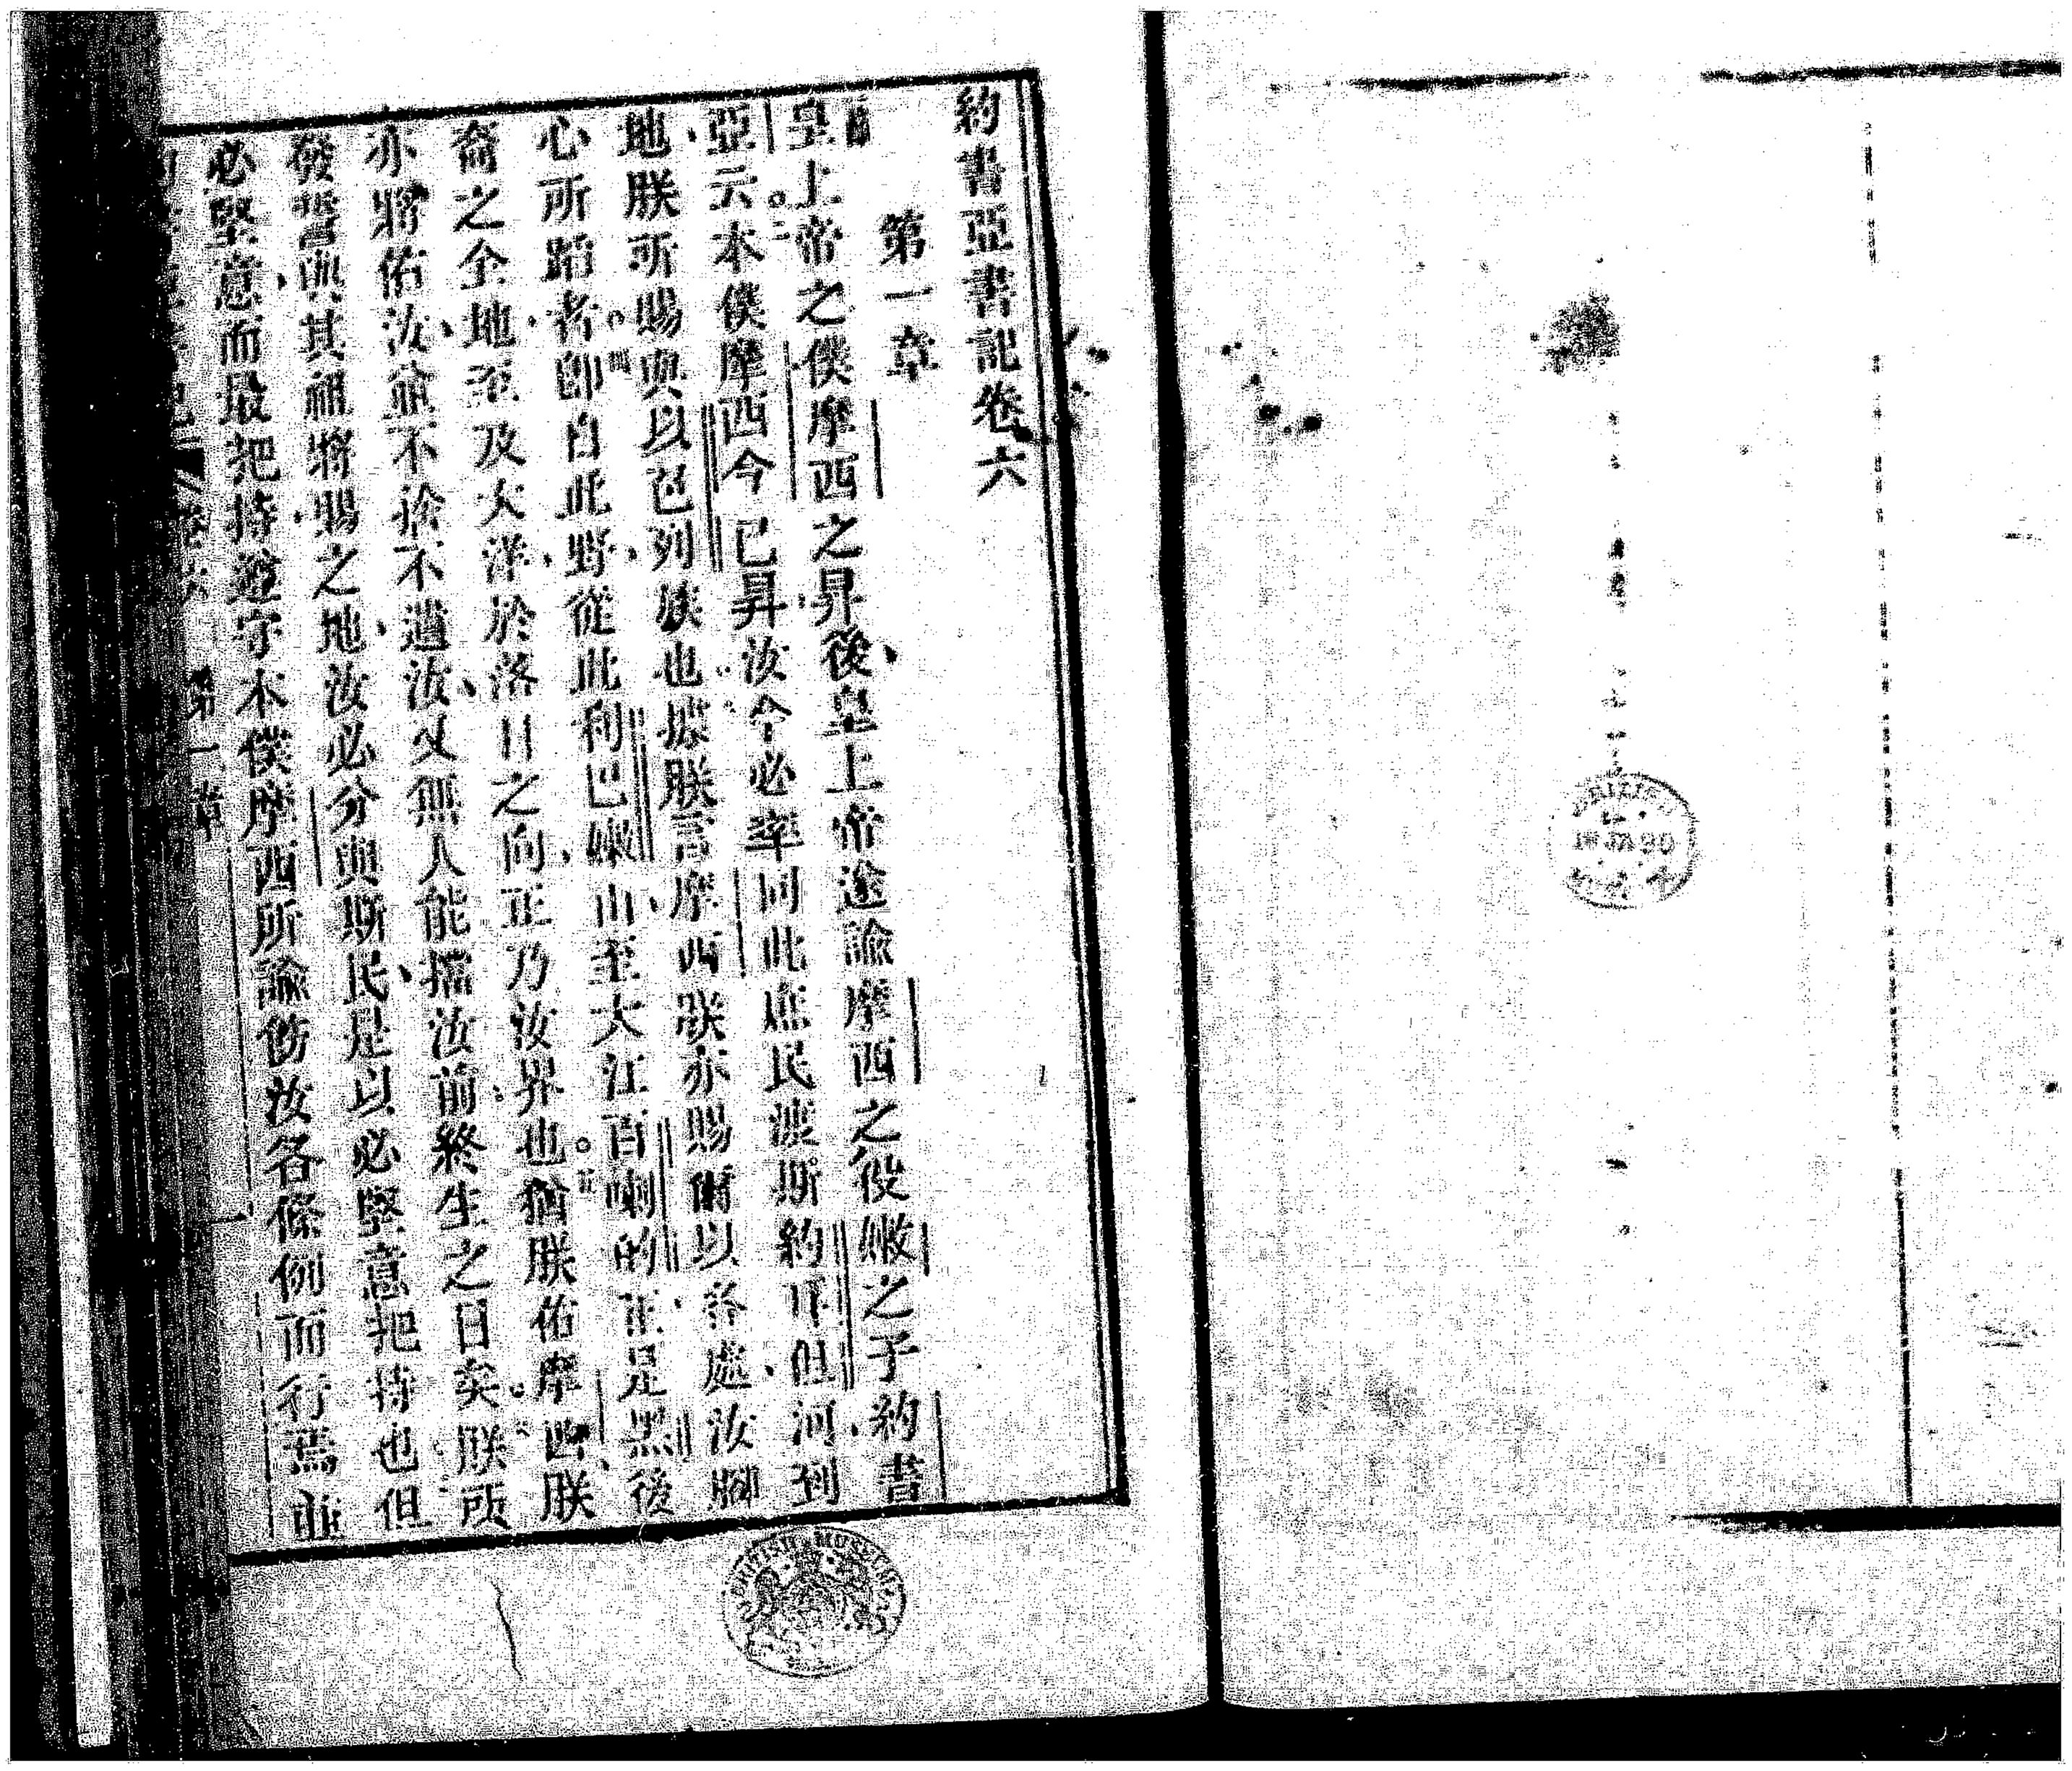 約書亞書記卷六
第一章
皇上帝之僕摩西之昇後、皇上帝遂諭摩西之役嫩之子約書
亞云。二本僕摩西今已昇、汝今必率同此庶民渡斯約耳但河到
地、朕所賜與以色列族也。據朕言摩西、朕亦賜爾以各處、汝腳
心所蹈者。四即自此野、從此利巴嫩山、至大江百喇的、正是黑後
裔之全地、至及大洋、於落日之向、正乃汝界也。五猶朕佑摩西、朕
亦將佑汝、並不捨不遺汝、又無人能擋汝前、終生之日矣。朕所
發誓與其祖、將賜之地、汝必分與斯民、是以必堅意把持也。但
必堅意而最把持遵守本僕摩西所諭飭汝各條例而行焉並
第一章
一
BRITISH MUSEUM